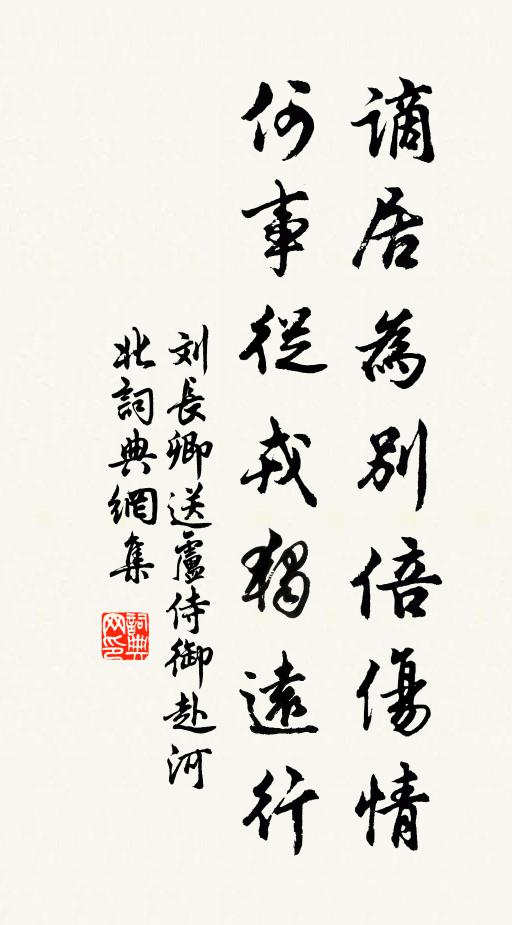 謫居為別倍傷情
何事從戎獨遠行
刘長卿送盧侍御赴河
北詞典網集
詞典网印